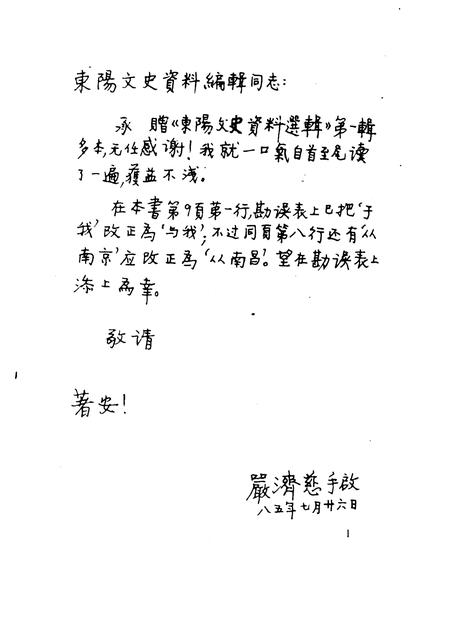 東陽文史資料編輯同志：
承 贈《東陽文史資料選輯》第一輯
多本,无任感谢！我就一口氣自首至尾读
了一遍,獲益不浅。
在本書第9頁第一行,勘误表上已把‘于
我’改正為‘与我’；不过同頁第八行还有‘从
南京’应改正為‘从南昌’。望在勘误表上
添上為幸。
敬请
著安！
嚴濟慈手啟
八五年七月廿六日